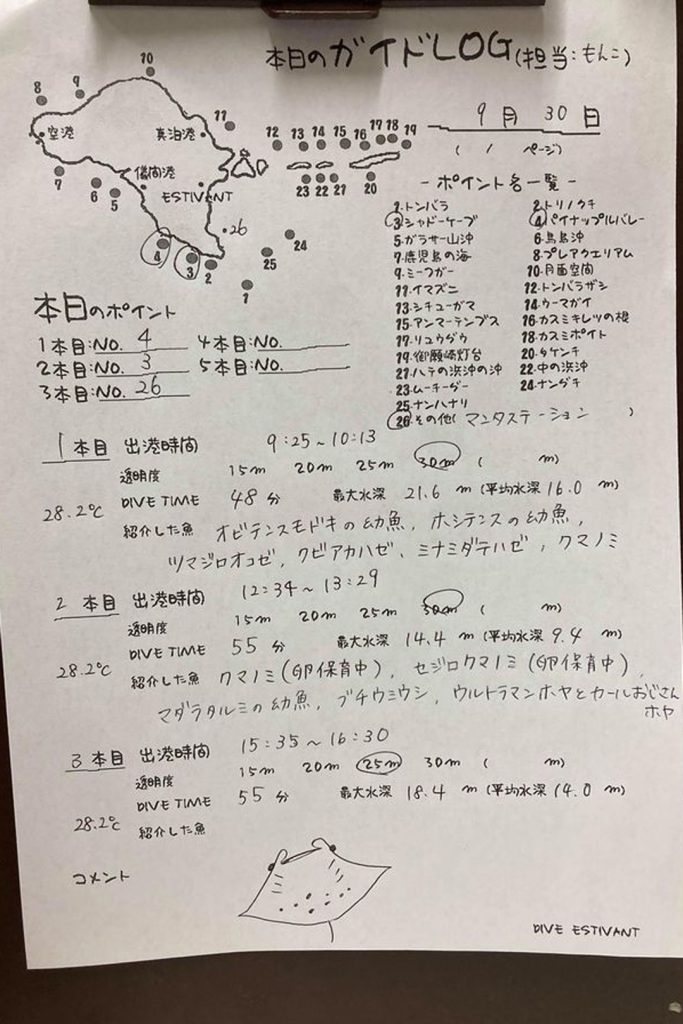 本日のガイドLOG(担当:もんこ)
9月 30日
( 1 ページ)
8 9 10 11 12 13 14 15 16 17 18 19
空港 真泊港
儀間港
ESTIVANT
7 6 5 23 22 21 20
26 24 25
4 3 2 1
-ポイント名一覧-
1.トンバラ 2.トリノクチ
3.シャドーケーブ 4.パイナップルバレー
5.ガラサー山沖 6.鳥島沖
7.鹿児島の海 8.プレアクエリアム
9.ミーフガー 10.月面空間
11.イマズニ 12.トンバラザシ
13.シチューガマ 14.ウーマガイ
15.アンマーテンプス 16.カスミキレツの根
17.リュウグウ 18.カスミポイント
19.御願崎灯台 20.タケンチ
21.ハテの浜沖の沖 22.中の浜沖
23.ムーチーグー 24.ナングチ
25.ナンハナリ
26.その他(マンタステーション )
本日のポイント
1本目:NO. 4 4本目:NO.
2本目:NO. 3 5本目:NO.
3本目:NO. 26
1 本目 出港時間 9:25~10:13
透明度 15m 20m 25m 30m ( m)
28.2℃ DIVE TIME 48分 最大水深 21.6 m (平均水深 16.0 m)
紹介した魚 オビテンスモドキの幼魚, ホシテンスの幼魚,
ツマジロオコゼ, クビアカハゼ、ミナミダテハゼ, クマノミ
2 本目 出港時間 12:34~13:29
透明度 15m 20m 25m 30m ( m)
DIVE TIME 55分 最大水深 14.4 m (平均水深 9.4 m)
28.2℃ 紹介した魚 クマノミ(卵保育中), セジロクマノミ(卵保育中),
マダラタルミの幼魚, ブチウミウシ, ウルトラマンホヤとカールおじさん
ホヤ
3 本目 出港時間 15:35~16:30
透明度 15m 20m 25m 30m ( m)
DIVE TIME 55分 最大水深 18.4 m (平均水深 14.0 m)
28.2℃ 紹介した魚
コメント
DIVE ESTIVANT